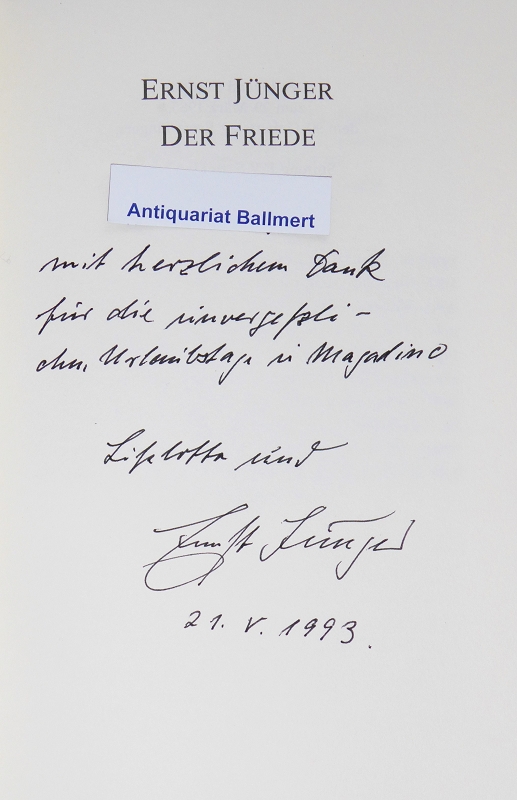 ERNST JÜNGER
DER FRIEDE
Antiquariat Ballmert
mit herzlichem Dank
für die unvergeßli-
chen Urlaubstage in Magadino
Liselotte und
Ernst Jünger
21. V. 1993.